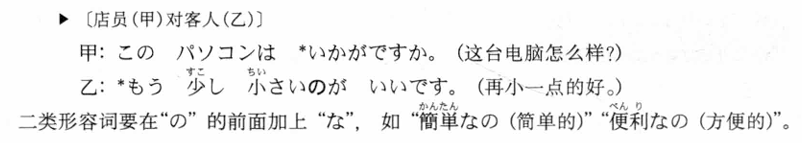 ▶ 〔店员(甲)对客人(乙)〕
甲: この パソコンは *いかがですか。 (这台电脑怎么样?)
乙: *もう 少し 小さいのが いいです。 (再小一点的好。)
二类形容词要在“の” 的前面加上 “な”, 如 “簡単なの (简单的)” “便利なの (方便的)”。